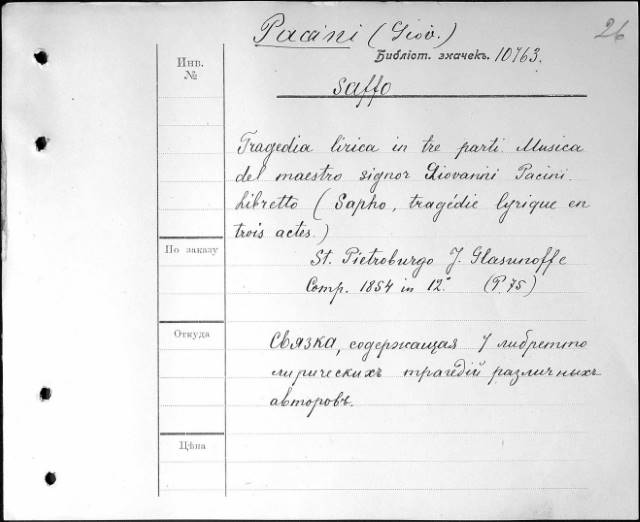 Pacini (Giov.)
26
Библіот. значекъ. 10763.
Инв.
№
Saffo
Tragedia lirica in tre parti Musica
del maestro signor Giovanni Pacini.
Libretto (Sapho, tragédie lyrique en
trois actes.)
По заказу
St. Pietroburgo J. Glasunoff e
Comp. 1854 in 12° (P. 75)
Откуда
Связка, содержащая 7 либретто
лирическихъ трагедій различныхъ
авторовъ.
Цѣна